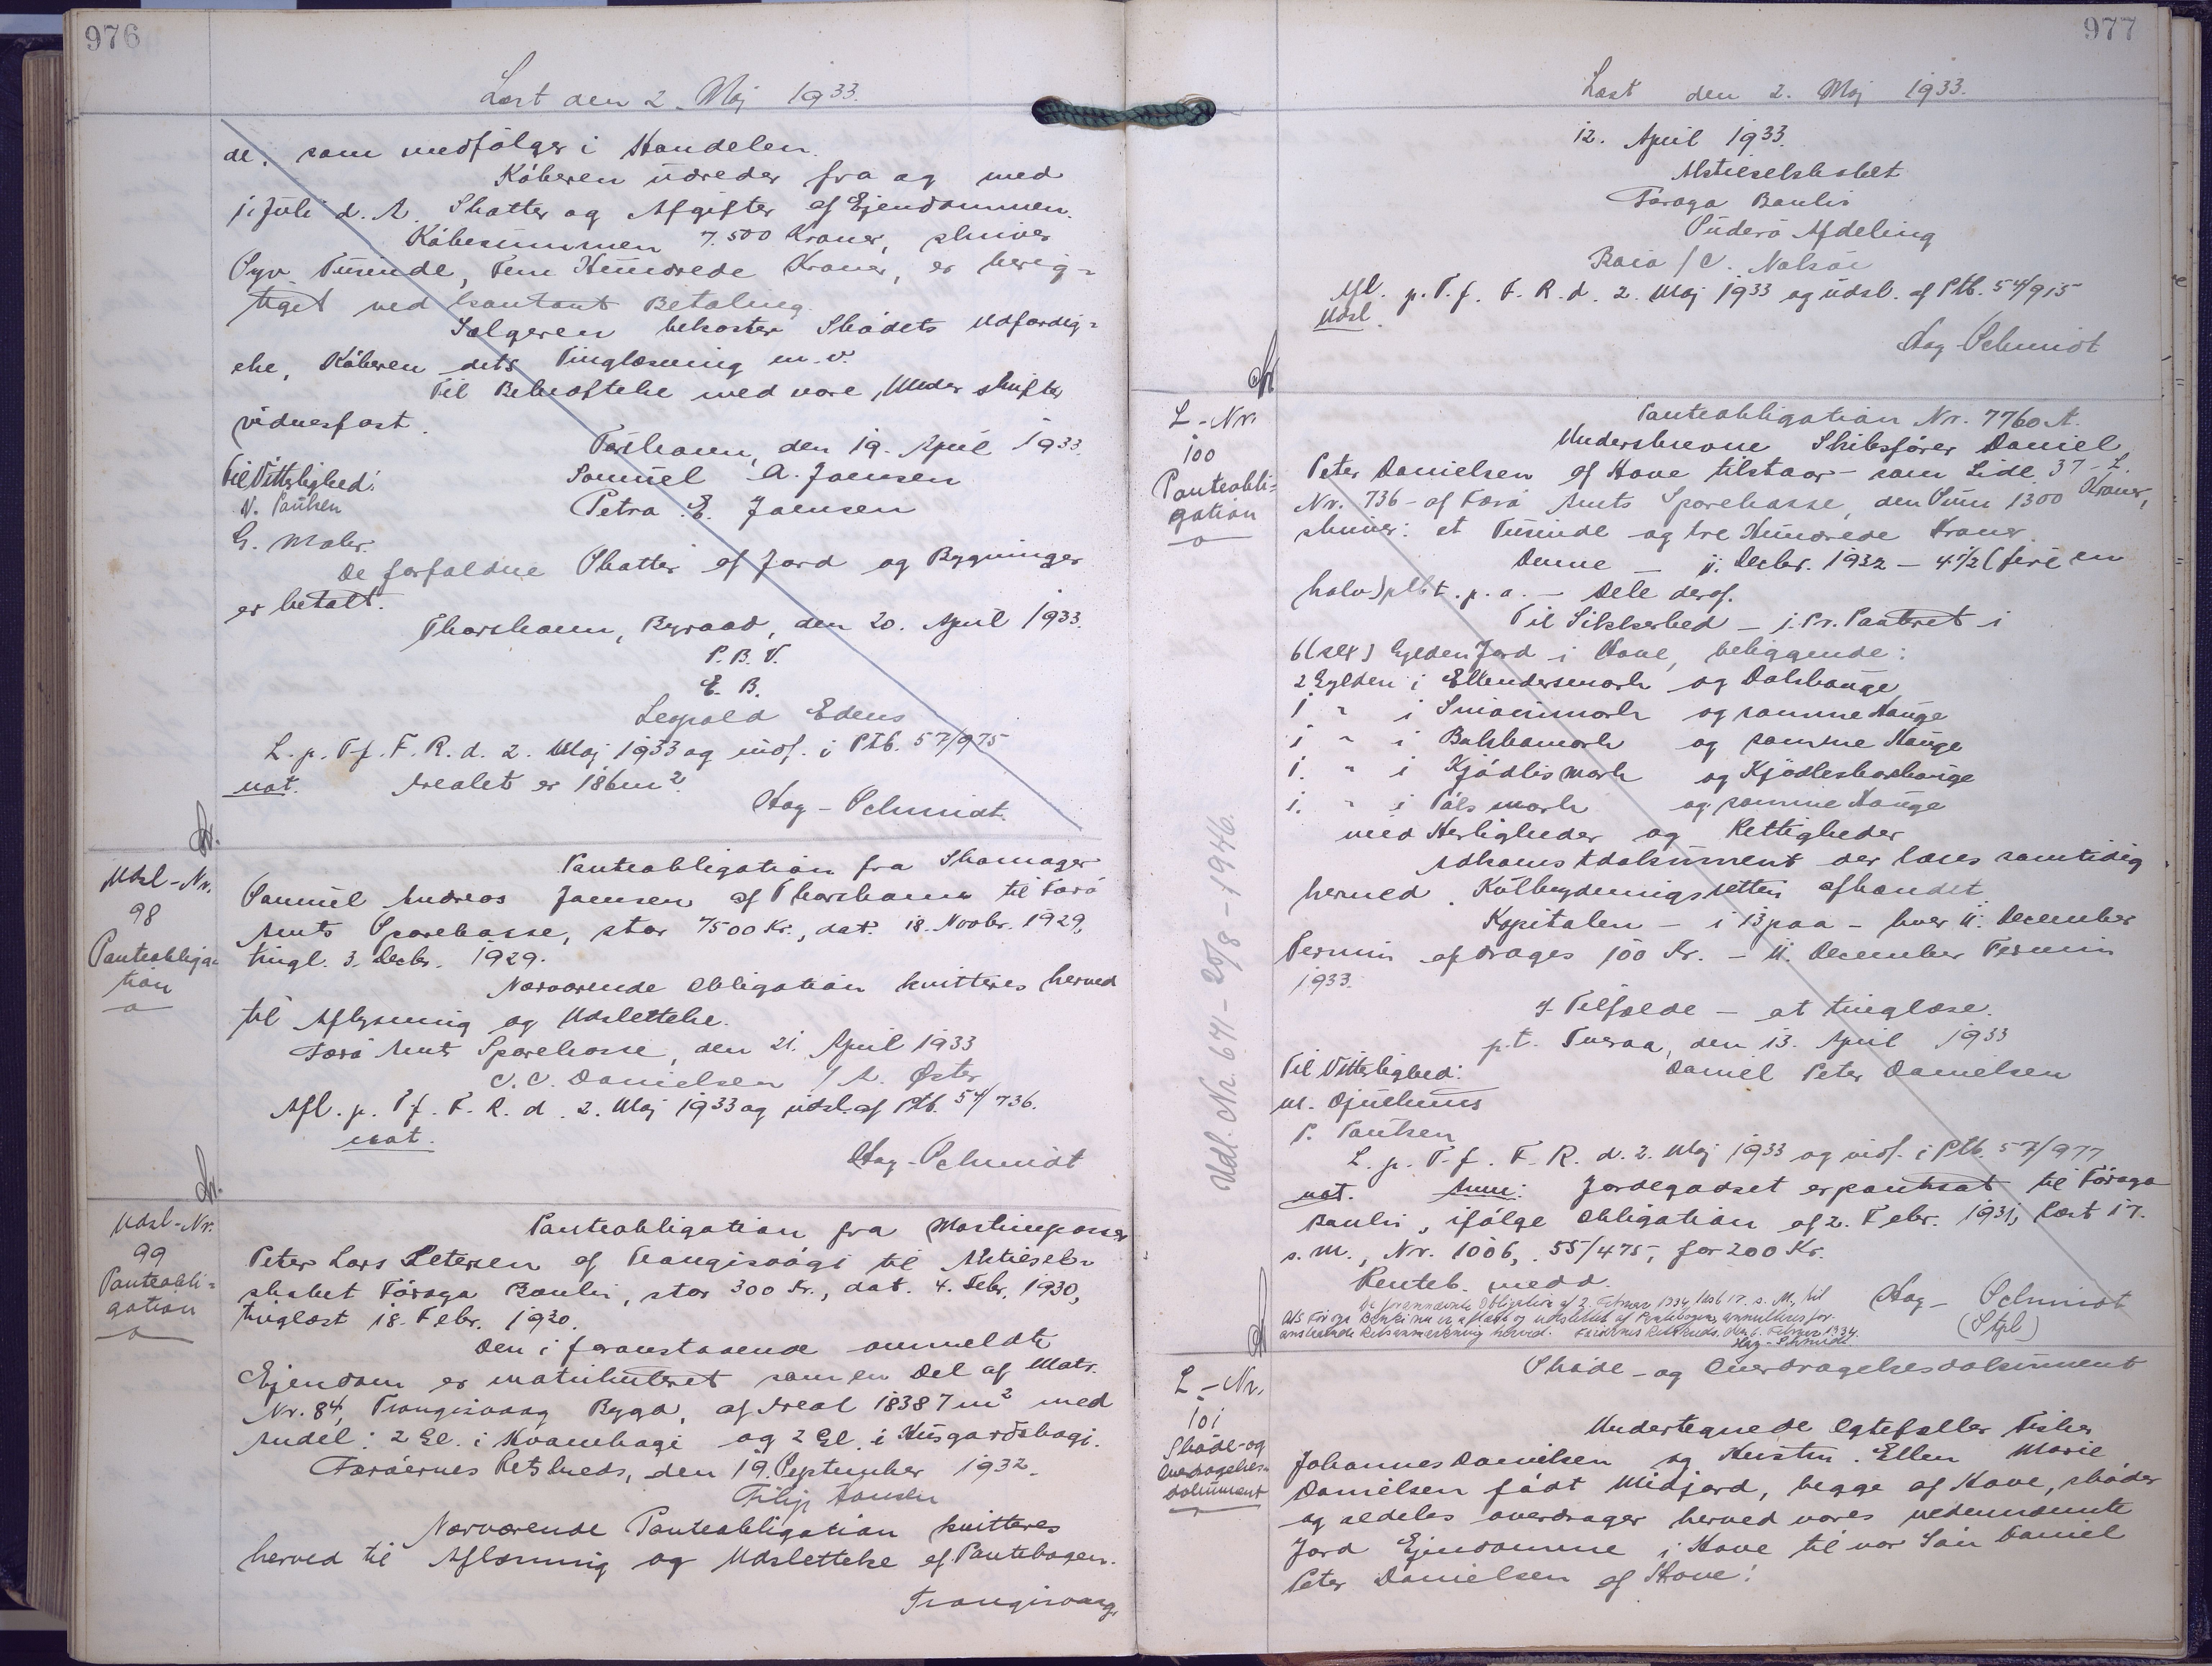 976
Læst den 2. Maj 1933.
de, som medfølger i Handelen.
Køberen udreder fra og med
1. Juli d. A. Skatter og Afgifter af Ejendommen.
Købesummen 7.500 Kroner, skriver
Syv Tusinde, Fem Hundrede Kroner, er berig-
tiget ved kontant Betaling.
Sælgeren bekoster Skødets Udfærdig-
else, Køberen dets Tinglæsning m.v.
Til Bekræftelse med vore Underskrifter
vidnesfast.
Tórshavn, den 19. April 1933.
Til Vitterlighed: Samuel A. Joensen
V. Poulsen Petra E. Joensen
G. Mohr.
De forfaldne Skatter af Jord og Bygninger
er betalt.
Thorshavn, Byraad, den 20. April 1933.
P. B. V.
E. B.
Leopold Edens
L. p. T. f. F. R. d. 2. Maj 1933 og indf. i Ptb. 57/975
not. Arealet er 186 m².
Hag-Schmidt.
Udsl-Nr.
98
Panteobliga-
tion
Panteobligation fra Skomager
Samuel Andreas Joensen af Thorshavn til Færø
Amts Sparekasse, stor 7500 Kr., dat. 18. Novbr. 1929,
tingl. 3. Decbr. 1929.
Nærværende Obligation kvitteres herved
til Aflysning og Udslettelse.
Færø Amts Sparekasse, den 21. April 1933
C. C. Danielsen / A. Øster
Afl. p. T. f. F. R. d. 2. Maj 1933 og udsl. af Ptb. 54/736.
not.
Hag-Schmidt
Udsl-Nr.
99
Panteobli-
gation
Panteobligation fra Maskinpasser
Peter Lars Petersen af Trangisvági til Aktiesel-
skabet Föroya Banki, stor 300 Kr., dat. 4. Febr. 1930,
tinglæst 18. Febr. 1930.
Den i foranstaaende ommeldte
Ejendom er matrikuleret som en Del af Matr.
Nr. 84, Trangisvaag Bygd, af Areal 18387 m² med
Andel: 2 Gl. i Kvannhagi og 2 Gl. i Húsgardshagi.
Færøernes Retskreds, den 19. September 1932.
Filip Hansen
Nærværende Panteobligation kvitteres
herved til Aflæsning og Udslettelse af Pantebogen.
Trangisvaag,
977
Læst den 2. Maj 1933.
12. April 1933.
Aktieselskabet
Föroya Banki
Suderö Afdeling
/ C. Nolsöe
Afl. p. T. f. F. R. d. 2. Maj 1933 og udsl. af Ptb. 54/915
Udsl.
Hag-Schmidt
L-Nr.
100
Panteobli-
gation
Panteobligation Nr. 7760 A.
Underskrevne Skibsfører Daniel
Peter Danielsen af Hove tilstaar - som Side 37 - L.
Nr. 736 - af Færø Amts Sparekasse, den Sum 1300 Kroner,
skriver: et Tusinde og tre Hundrede Kroner.
Denne - 11. Decbr. 1932 - 4½ (fire en
halv) pCt. p. a. - Dele deraf.
Til Sikkerhed - 1. Pr. Panteret i
6 (sex) Gylden Jord i Hove, beliggende:
2 Gylden i Ellendersmork og
1 " i og samme Hauge
1 " i og samme Hauge
1. " i Kjødlismork og
1. " i Pálsmork og samme Hauge
med Herligheder og Rettigheder
Adkomstdokument der læses samtidig
hermed. Kulbrydningsretten afhændet.
Kapitalen - i 13 paa - hver 11. December
Termin afdrages 100 Kr. - 11. December Termin
1933.
I Tilfælde - at tinglæse.
p.t. Tveraa, den 13. April 1933
Til Vitterlighed: Daniel Peter Danielsen
M. Djurhuus
P. Poulsen
L. p. T. f. F. R. d. 2. Maj 1933 og indf. i Ptb. 57/977
not. Anm: Jordegodset er pantsat til Föroya
Banki, ifølge Obligation af 2. Febr. 1931, læst 17.
s. M., Nr. 1006, 55/475, for 200 Kr.
Renteb. medd.
Hag-Schmidt
(Stpl)
Da forannævnte Obligation af 2. Februar 1931, læst 17. s. M., til
A/S Föroya Banki nu er aflæst og udslettet af Pantebogen, annulleres for-
anstaaende Retsanmærkning herved. Færøernes Retskreds, den 6. Februar 1934.
Hag-Schmidt.
Udl. Nr. 671 - 20/8 - 1946.
L-Nr.
101
Skøde- og
Overdragelses-
dokument
Skøde- og Overdragelsesdokument
Undertegnede Egtefæller Fisker
Johannes Danielsen og Hustru Ellen Marie
Danielsen født Midjord, begge af Hove, skøder
og aldeles overdrager herved vores nedennævnte
Jord Ejendomme i Hove til vor Søn Daniel
Peter Danielsen af Hove: